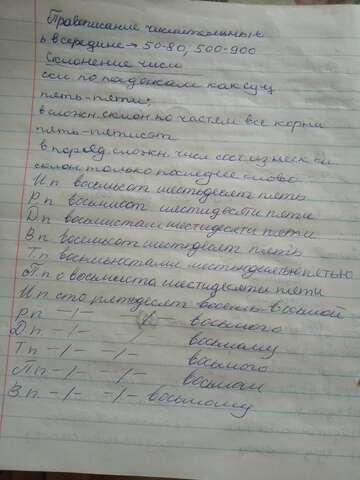 Правописание числительных
ь в середине → 50-80, 500-900
Склонение числ
скл по падежам как сущ
пять-пяти;
в сложн. склон по частям все корни
пять-пятисот
в поряд сложн. числ сост из неск сл
склон только последнее слово
И п восемьсот шестьдесят пять
Р п восьмисот шестидесяти пяти
Д п восьмистам шестидесяти пяти
В п восемьсот шестьдесят пять
Т п восьмьюстами шестьюдесятью пятью
П п о восьмиста шестидесяти пяти
И п сто пятьдесят восьмой
Р п -/- -/- восьмого
Д п -/- -/- восьмому
Т п -/- -/- восьмого
П п -/- -/- восьмом
В п -/- -/- восьмому